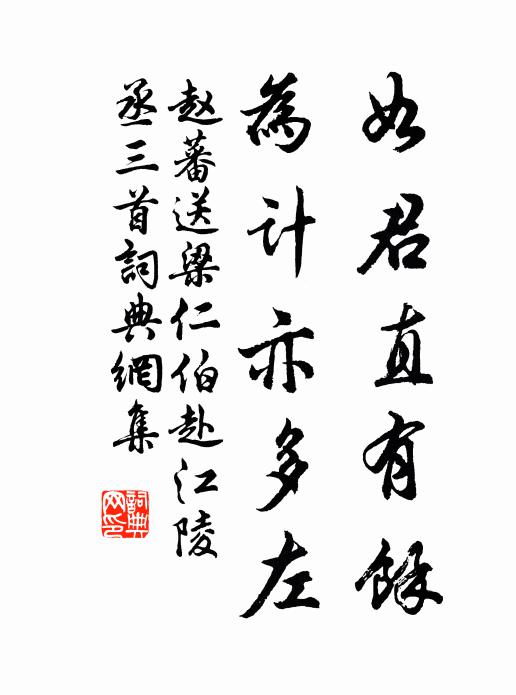 如君直有餘
為計亦多左
赵蕃送梁仁伯赴江陵
丞三首詞典網集
詞典
网印